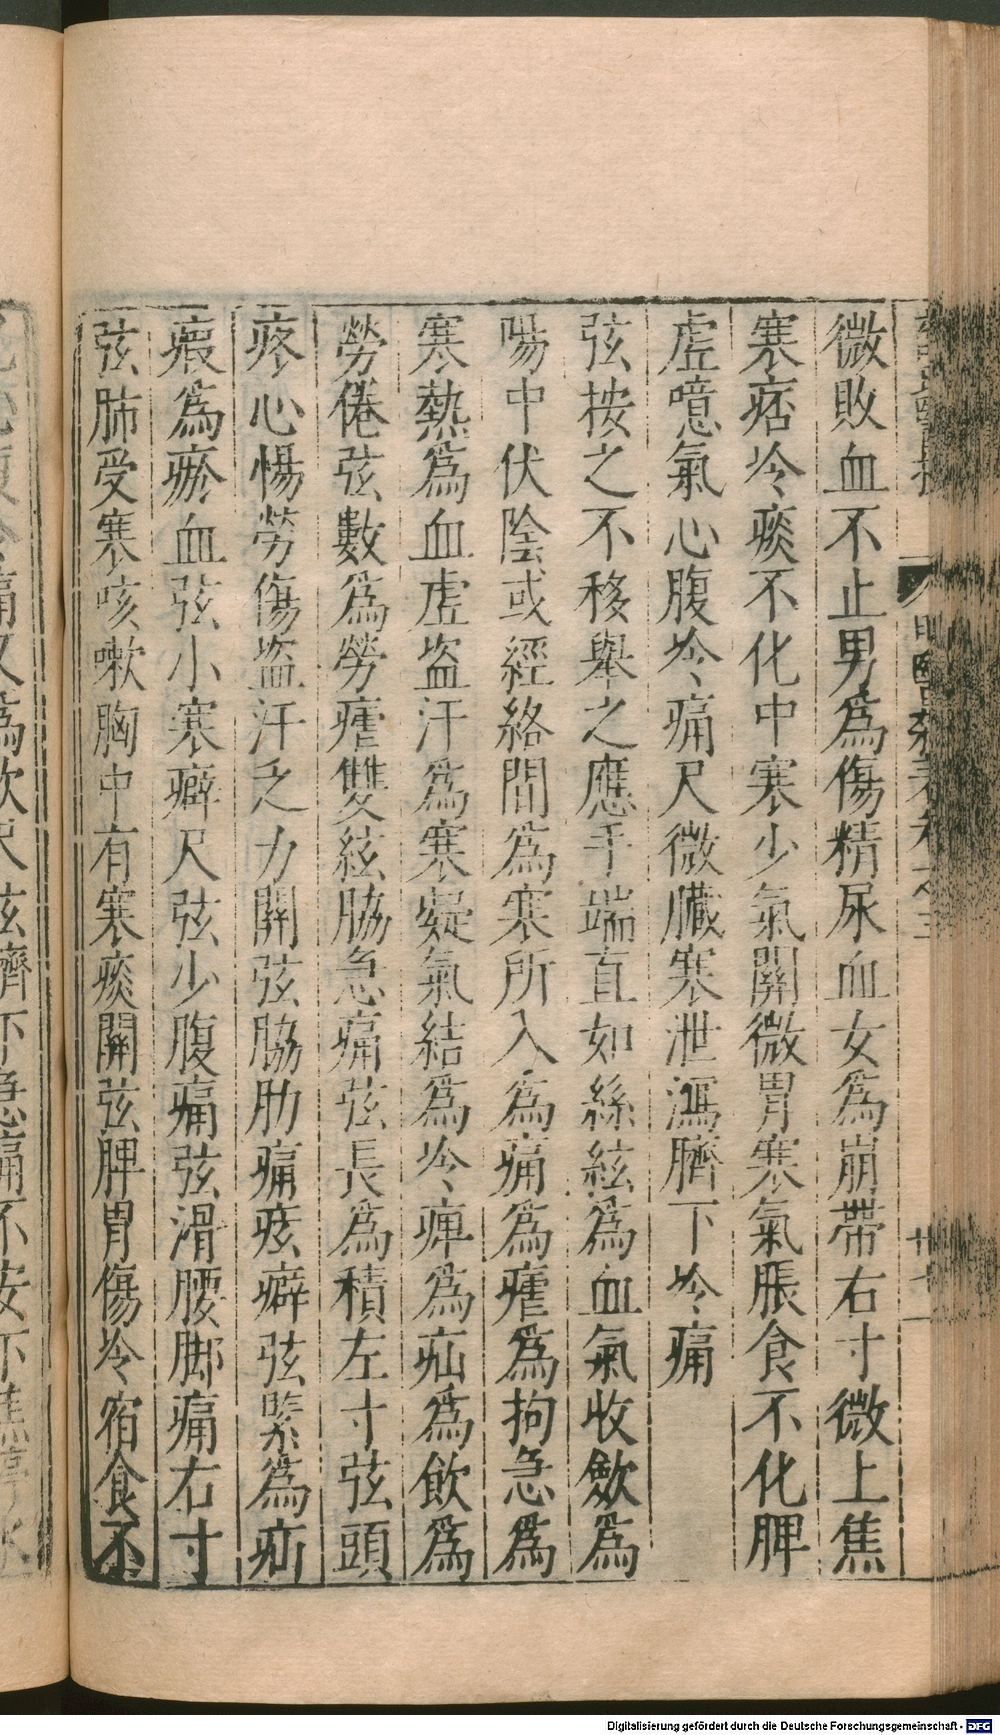 微敗血不止男爲傷精尿血女爲崩帶右寸微上焦
寒痞冷痰不化中寒少氣關微胃寒氣脹食不化脾
虛噫氣心腹冷痛尺微臟寒泄瀉臍下冷痛
弦按之不移舉之應手端直如絲絃爲血氣收斂爲
陽中伏陰或經絡間爲寒所入爲痛爲瘧爲拘急爲
寒熱爲血虛盜汗爲寒凝氣結爲冷痺爲疝爲飲爲
勞倦弦數爲勞瘧雙絃脇急痛弦長爲積左寸弦頭
疼心惕勞傷盜汗乏力關弦脇肋痛痃癖弦緊爲疝
瘕爲瘀血弦小寒癖尺弦少腹痛弦滑腰脚痛右寸
弦肺受寒咳嗽胸中有寒痰關弦脾胃傷冷宿食不
Digitalisierung gefördert durch die Deutsche Forschungsgemeinschaft - DFG